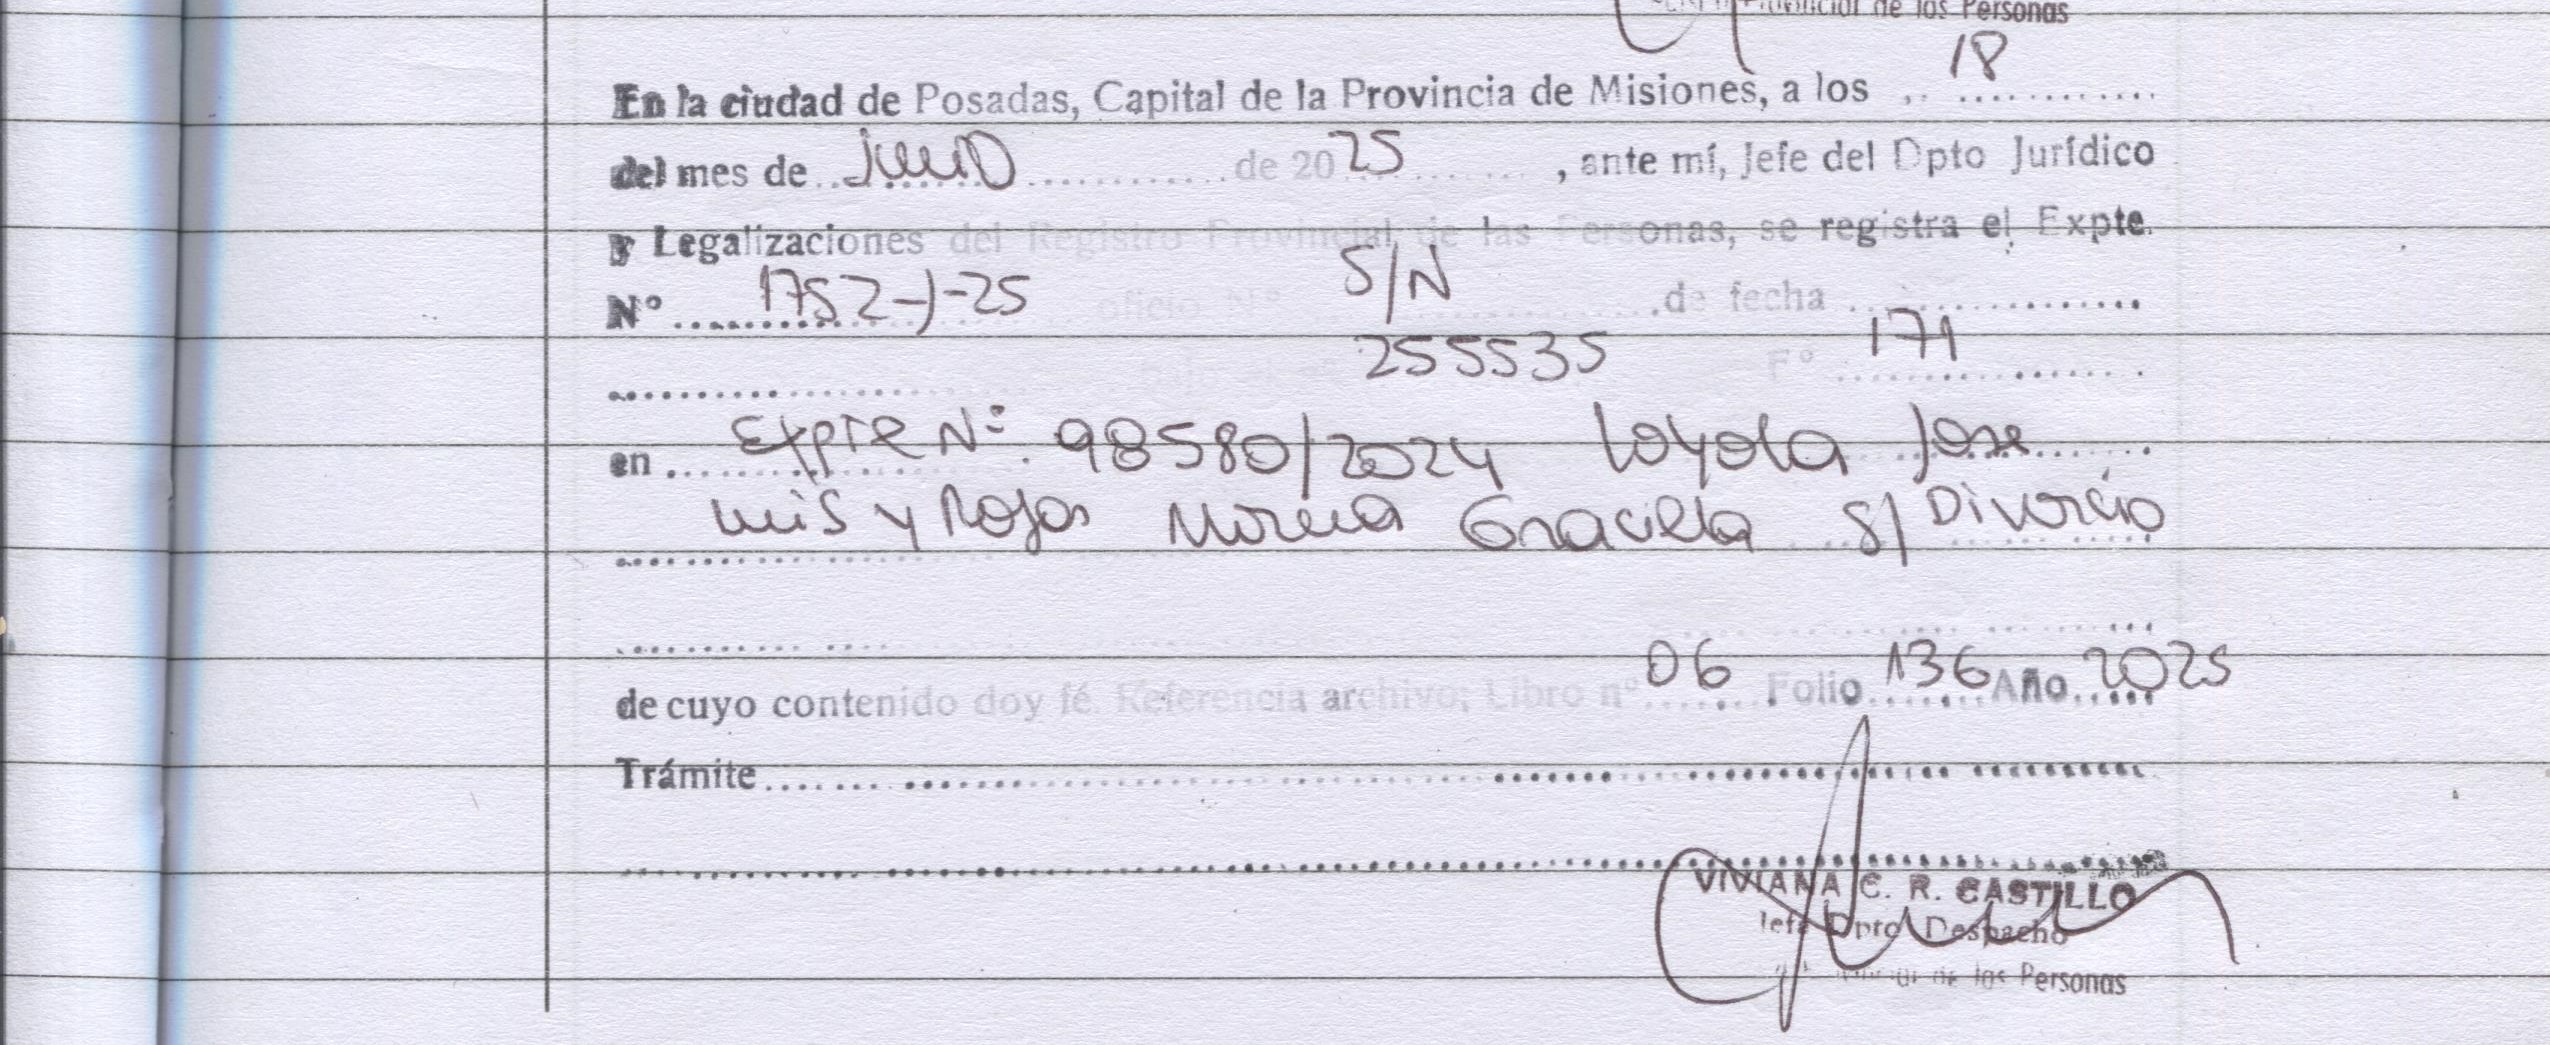 Provincial de las Personas
En la ciudad de Posadas, Capital de la Provincia de Misiones, a los 18
del mes de de 2025, ante mí, Jefe del Dpto Jurídico
y Legalizaciones del Registro Provincial de las Personas, se registra el Expte.
Nº 1752-J-25 oficio Nº S/N de fecha
255535 Fº 171
en Expte Nº 98580/2024 Loyola Jose
Luis y Rojas Graciela S/ Divorcio
de cuyo contenido doy fé. Referencia archivo; Libro nº 06 Folio 136 Año 2025
Trámite
VIVIANA C. R. CASTILLO
Jefa Dpto Despacho
de las Personas